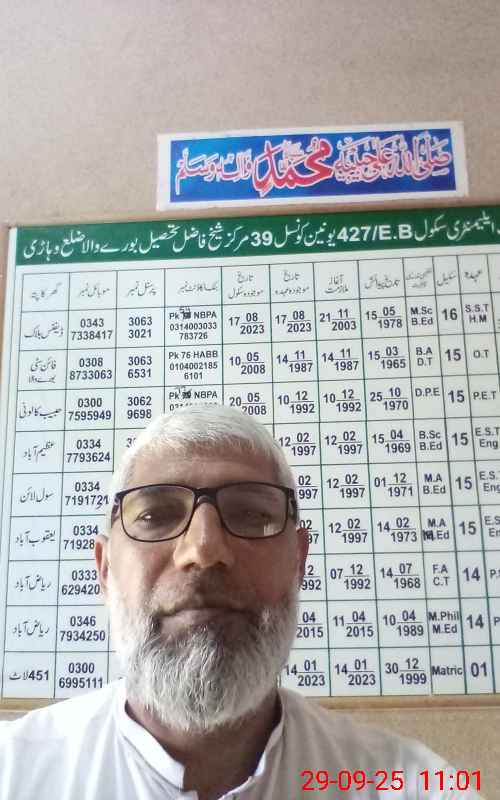 صلی اللہ علی حبیبہ محمد وآلہ وسلم
ایلیمنٹری سکول 427/E.B یونین کونسل 39 مرکز شیخ فاضل تحصیل بورے والا ضلع وہاڑی
عہدہ سکیل تاریخ پیدائش آغاز ملازمت تاریخ موجودہ عہدہ تاریخ موجودہ سکول بنک اکاؤنٹ نمبر پرسنل نمبر موبائل نمبر گھر کا پتہ
S.S.T H.M 16 M.Sc B.Ed 15 05 1978 21 11 2003 17 08 2023 17 08 2023 Pk NBPA 0314003033 783726 3063 3021 0343 7338417 ڈیفنس بلاک
O.T 15 B.A D.T 15 03 1965 14 11 1987 14 11 1987 10 05 2008 Pk 76 HABB 0104002185 6101 3063 6531 0308 8733063 فائن سٹی بورے والا
P.E.T 15 D.P.E 25 10 1970 10 12 1992 10 12 1992 20 05 2008 Pk NBPA 3062 9698 0300 7595949 حبیب کالونی
E.S.T Eng 15 B.Sc B.Ed 15 04 1969 12 02 1997 12 02 1997 0334 7793624 عظیم آباد
E.S. Eng 15 M.A B.Ed 01 12 1971 12 02 1997 02 1997 0334 7191721 سول لائن
E.S En 15 M.A M.Ed 14 02 1973 12 02 1997 02 97 0334 71928 یعقوب آباد
P. 14 F.A C.T 14 07 1968 07 12 1992 12 992 0333 629420 ریاض آباد
P 14 M.Phil M.Ed 10 04 1989 11 04 2015 04 2015 0346 7934250 ریاض آباد
01 Matric 30 12 1999 14 01 2023 14 01 2023 0300 6995111 451 لاٹ
29-09-25 11:01